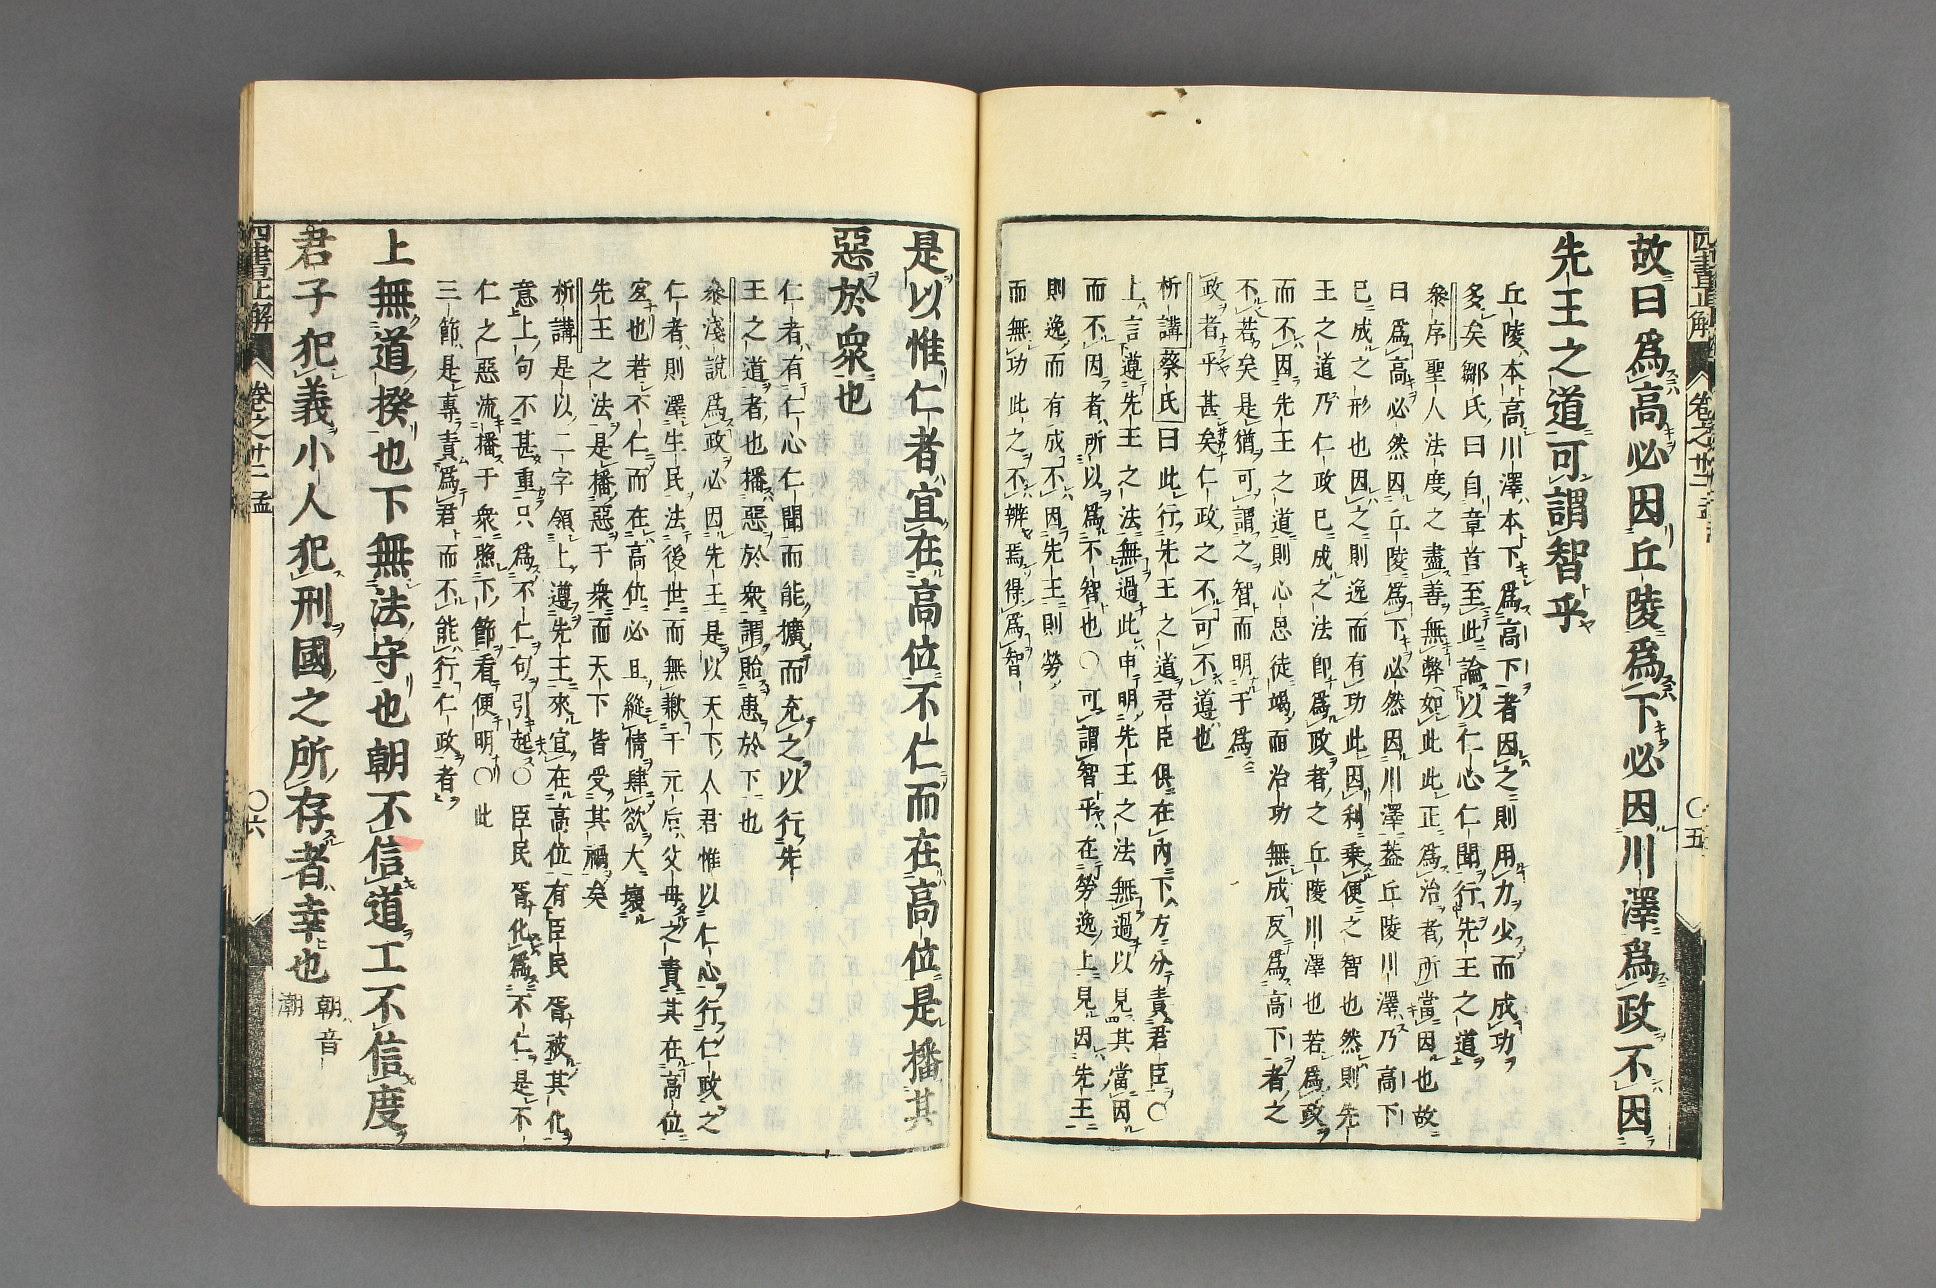 故曰爲高必因丘陵爲下必因川澤爲政不因
先王之道可謂智乎
丘陵本高川澤本下爲高下者因之則用力少而成功
多矣鄒氏曰自章首至此論以仁心仁聞行先王之道
叅序聖人法度之盡善無弊如此此正爲治者所當因也故
曰爲高必然因丘陵爲下必然因川澤蓋丘陵川澤乃高下
已成之形也因之則逸而有功此因利乘便之智也然則先
王之道乃仁政已成之法卽爲政者之丘陵川澤也若爲政
而不因先王之道則心思徒竭而治功無成反爲高下者之
不若矣是猶可謂之智而明于爲
政者乎甚矣仁政之不可不遵也
析講蔡氏曰此行先王之道君臣俱在內下方分責君臣〇
上言遵先王之法無過此申明先王之法無過以見其當因
而不因者所以爲不智也〇可謂智乎在勞逸上見因先王
則逸而有成不因先王則勞
而無功此之不辨焉得爲智
是以惟仁者宜在高位不仁而在高位是播其
惡於衆也
仁者有仁心仁聞而能擴而充之以行先
王之道者也播惡於衆謂貽患於下也
叅淺說爲政必因先王是以天下人君惟以仁心行仁政之
仁者則澤生民法後世而無歉于元后父母之責其在高位
宜也若不仁而在高位必且縱情肆欲大壞
先王之法是播惡于衆而天下皆受其禍矣
析講是以二字領上遵先王來宜在高位有臣民胥被其化
意上句不甚重只爲不仁句引起〇臣民胥化爲不仁是不
仁之惡流播于衆照下節看便明〇此
三節是專責爲君而不能行仁政者
上無道揆也下無法守也朝不信道工不信度
君子犯義小人犯刑國之所存者幸也
朝音
潮
四書正解
卷之廿二
孟
〇五
四書正解
卷之廿二
孟
〇六